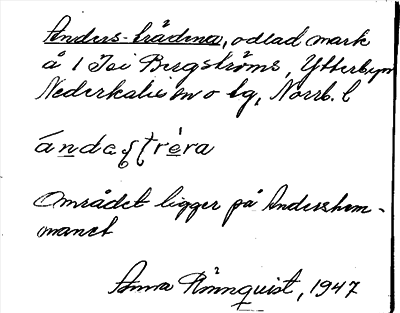 Anders-trådena, odlad mark
å 1 Toi Bergströms, Ytterbyn
Nederkalix sn o tg, Norrb. l
Området ligger på Andershem-
manet
Anna Rönnquist, 1947